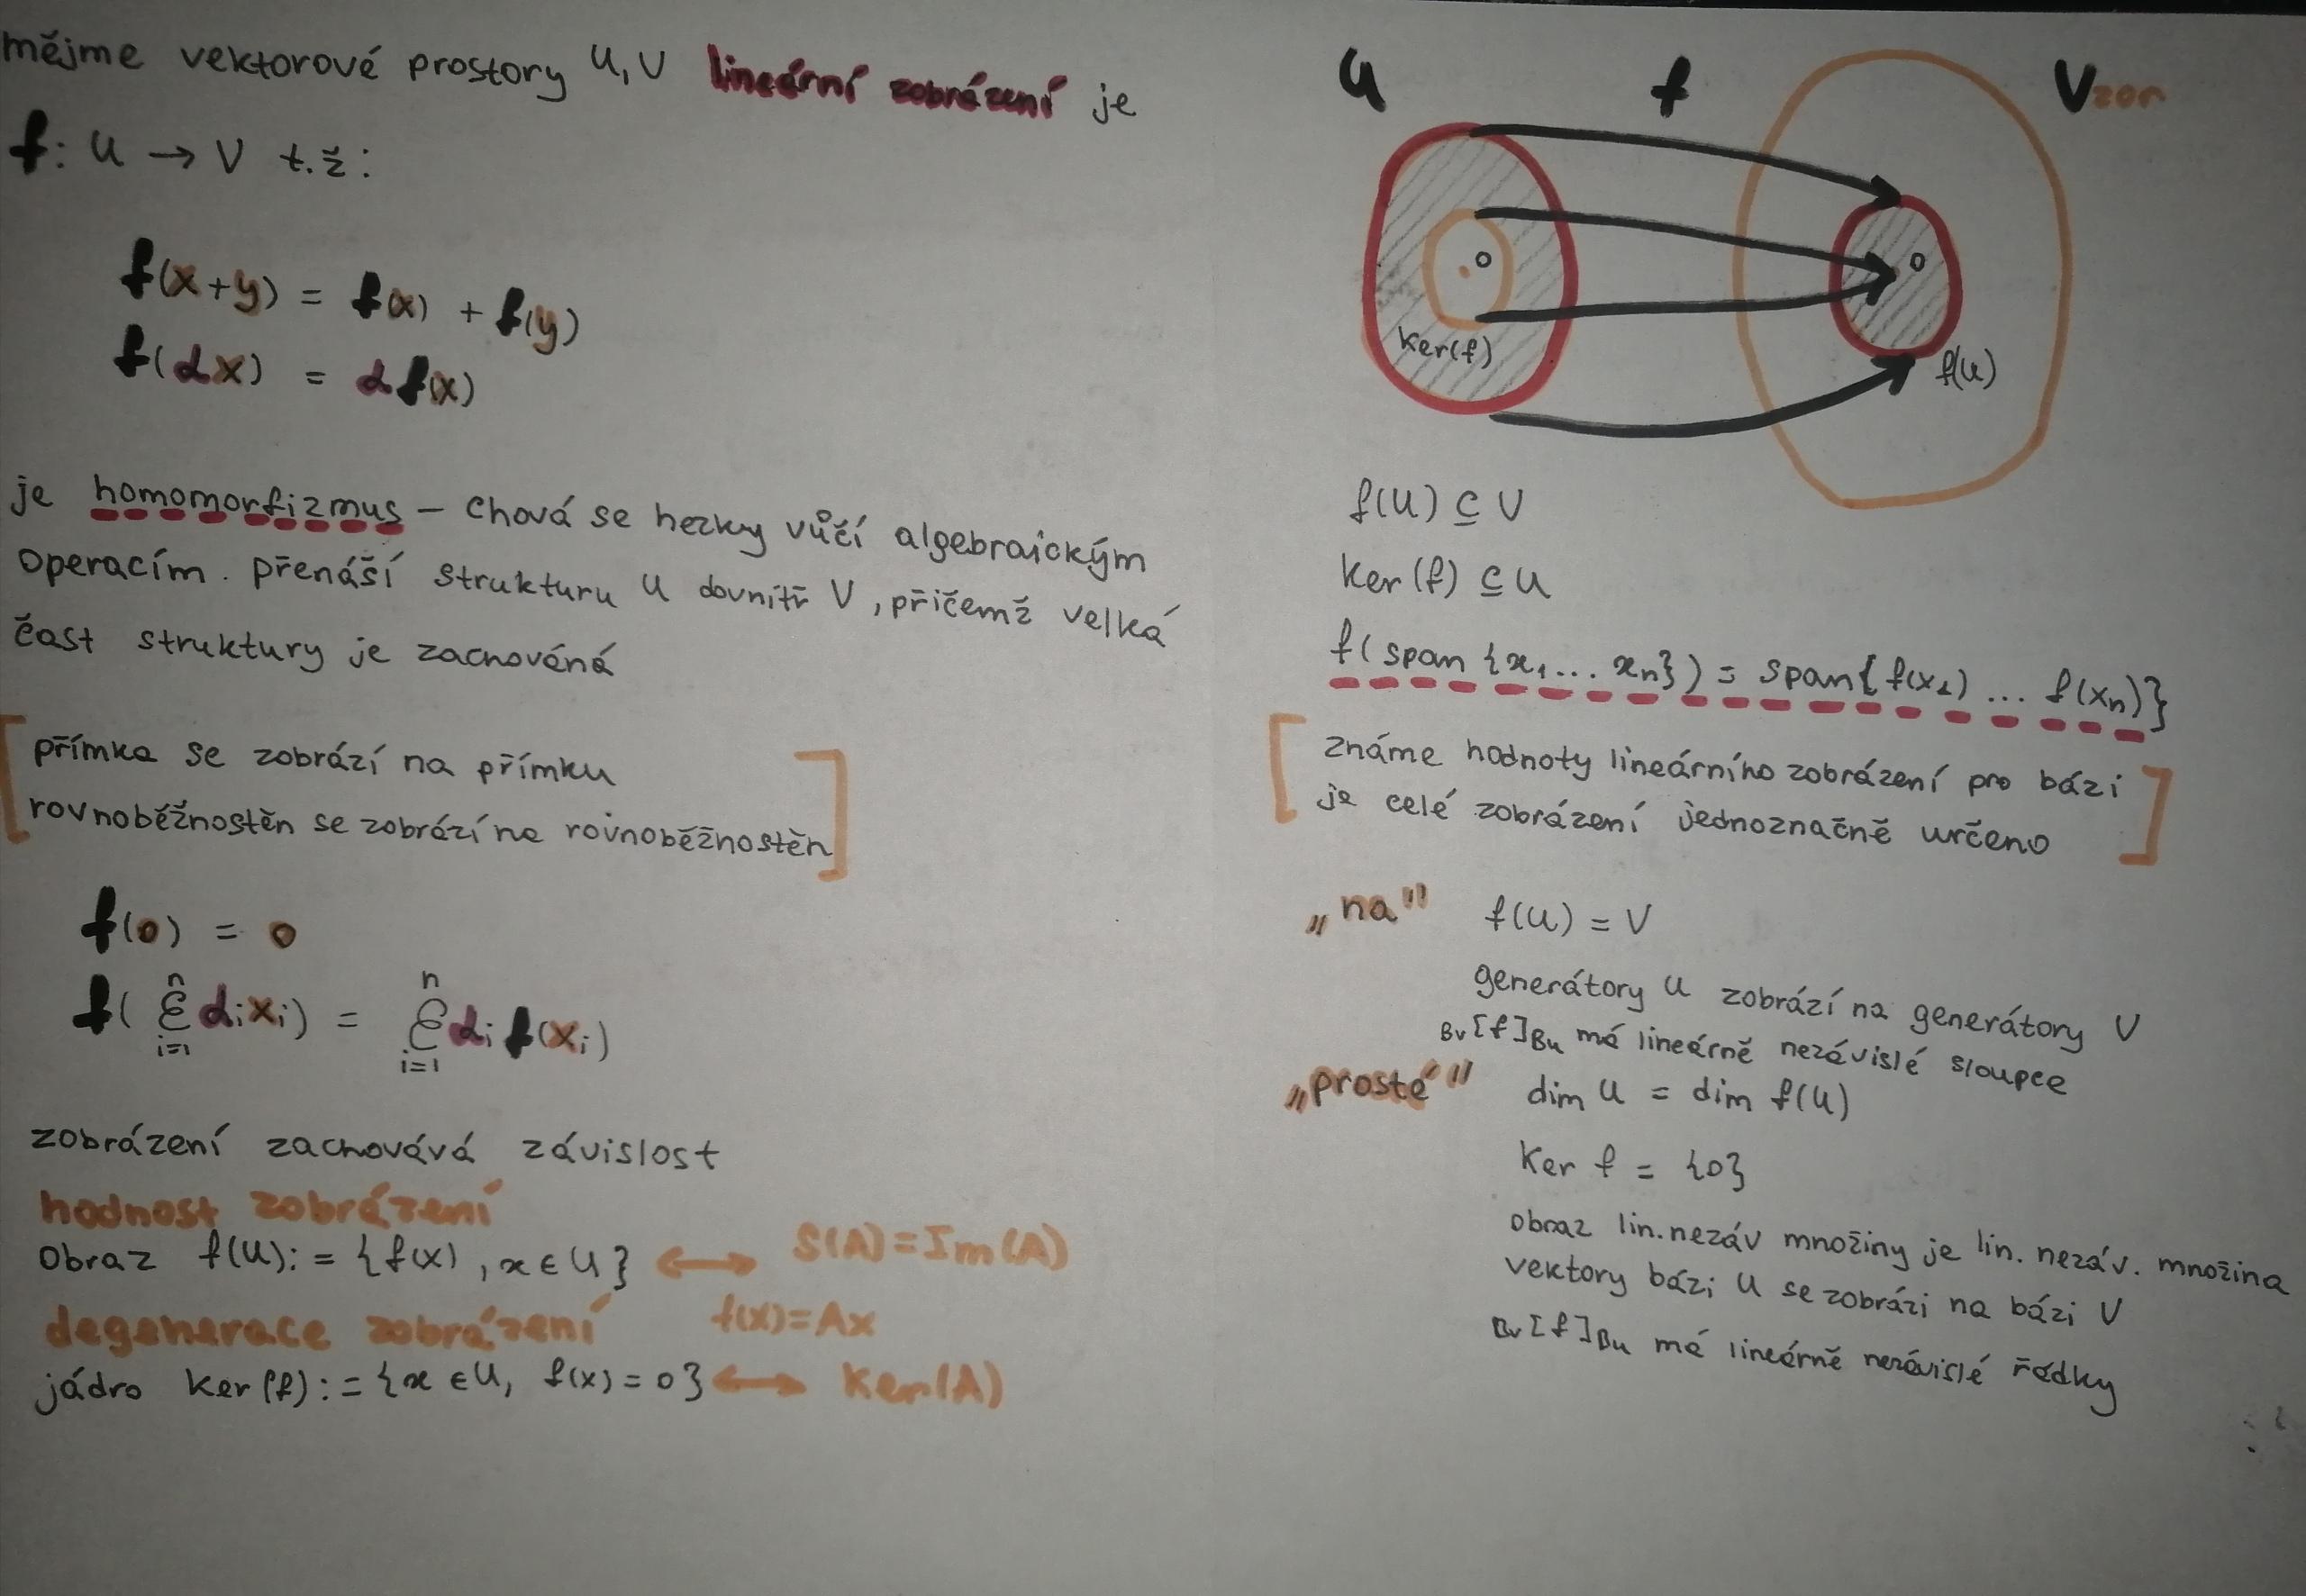 mějme vektorové prostory U, V lineární zobrázení je
f: U → V t.ž:
f(x+y) = f(x) + f(y)
f(αx) = αf(x)
je homomorfizmus – chová se hezky vůčí algebraickým
operacím. přenáší strukturu U dovnitř V, přičemž velká
čast struktury je zachováná
přímka se zobrází na přímku
rovnoběžnostěn se zobrází na rovnoběžnostěn
f(o) = o
f( Σ αixi) = Σ αi f(xi)
n
i=1
n
i=1
zobrázení zachovává závislost
hodnost zobrázení
obraz f(U): = {f(x), x ∈ U} ⟷ S(A) = Im(A)
degenerace zobrázení f(x)=Ax
jádro Ker(f): = {x ∈ U, f(x) = o} ⟷ Ker(A)
U f Vzor
o
o
Ker(f)
f(U)
f(U) ⊆ V
Ker(f) ⊆ U
f(span {x1 ... xn}) = span{f(x1) ... f(xn)}
známe hodnoty lineárního zobrázení pro bázi
je celé zobrázení jednoznačně určeno
„na" f(U) = V
generátory U zobrází na generátory V
Bv[f]Bu má lineárně nezávislé sloupce
„prosté" dim U = dim f(U)
Ker f = {o}
obraz lin. nezáv množiny je lin. nezáv. množina
vektory bázi U se zobrázi na bázi V
Bv[f]Bu má lineárně nezávislé řádky